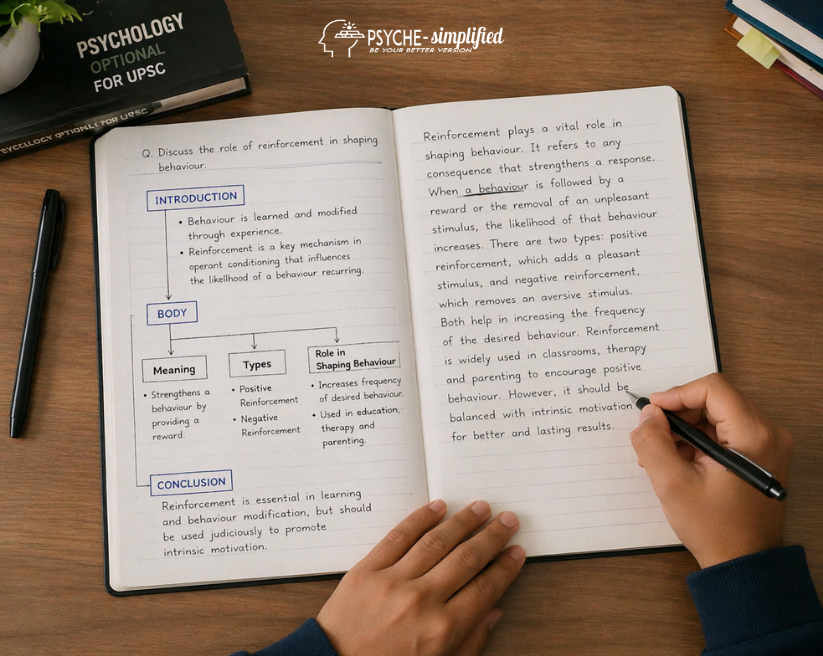 PSYCHE-simplified
BE YOUR BETTER VERSION
PSYCHOLOGY
OPTIONAL
FOR UPSC
Q. Discuss the role of reinforcement in shaping
behaviour.
INTRODUCTION
• Behaviour is learned and modified
through experience.
• Reinforcement is a key mechanism in
operant conditioning that influences
the likelihood of a behaviour recurring.
BODY
Meaning
• Strengthens a
behaviour by
providing a
reward.
Types
• Positive
Reinforcement
• Negative
Reinforcement
Role in
Shaping Behaviour
• Increases frequency
of desired behaviour.
• Used in education,
therapy and
parenting.
CONCLUSION
Reinforcement is essential in learning
and behaviour modification, but should
be used judiciously to promote
intrinsic motivation.
Reinforcement plays a vital role in
shaping behaviour. It refers to any
consequence that strengthens a response.
When a behaviour is followed by a
reward or the removal of an unpleasant
stimulus, the likelihood of that behaviour
increases. There are two types: positive
reinforcement, which adds a pleasant
stimulus, and negative reinforcement,
which removes an aversive stimulus.
Both help in increasing the frequency
of the desired behaviour. Reinforcement
is widely used in classrooms, therapy
and parenting to encourage positive
behaviour. However, it should be
balanced with intrinsic motivation
for better and lasting results.